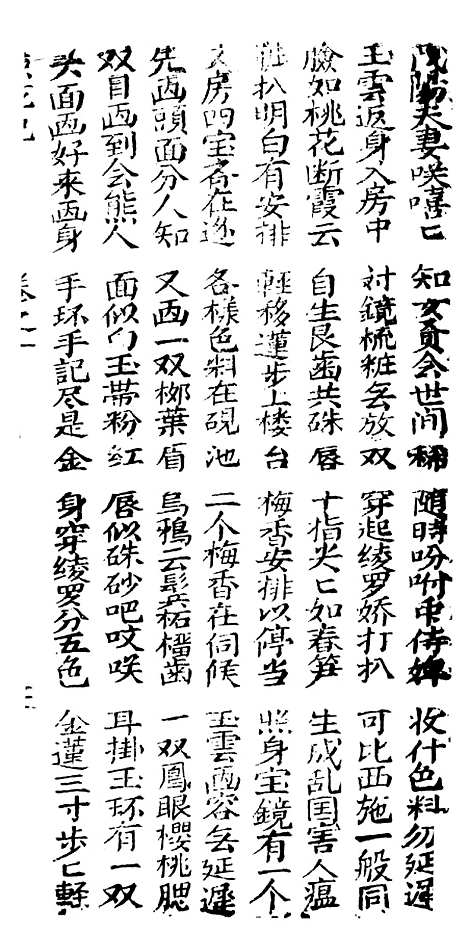 夫妻咲嘻匕 知女員会世间稀 随時吩咐中侍婢 收什色料勿延遅
玉雲返身入房中 对鏡梳粧旡放双 穿起绫罗娇打扒 可比西施一般同
臉如桃花断霞云 自生艮歯共硃唇 十指尖匕如春笋 生成乱国害人瘟
粧扒明白有安排 輕移蓮步上楼台 梅香安排以停当 照身宝鏡有一个
文房四宝各在边 各様色料在硯池 二个梅香在伺候 玉雲画容旡延遲
先画頭面分人知 又画一双柳葉眉 烏鴉云髻石榴歯 一双鳳眼櫻桃腮
双目画到会熊人 面似白玉帯粉红 唇似硃砂吧哎咲 耳掛玉环有一双
头面画好來画身 手环手記尽是金 身穿绫罗分五色 金蓮三寸步匕軽
卷之一